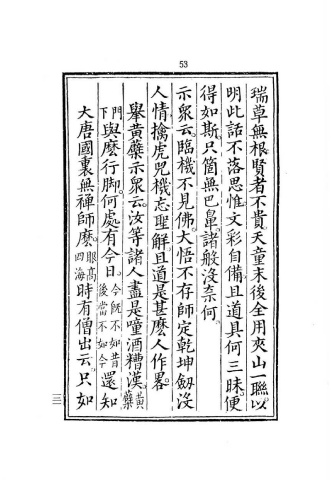 53
瑞草無根。賢者不貴。天童末後全用夾山一聯。以
明此話不落思惟。文彩自備。且道具何三昧。便
得如斯。只箇無巴鼻。諸般沒奈何。
示眾云。臨機不見佛。大悟不存師。定乾坤劒。沒
人情。擒虎兕機。忘聖解。且道是甚麼人作畧。
舉黃蘗示眾云。汝等諸人盡是噇酒糟漢。黃蘗
門下與麼行脚。何處有今日。今既不如昔後當不如今還知
大唐國裏無禪師麼。眼高四海時有僧出云。只如
三